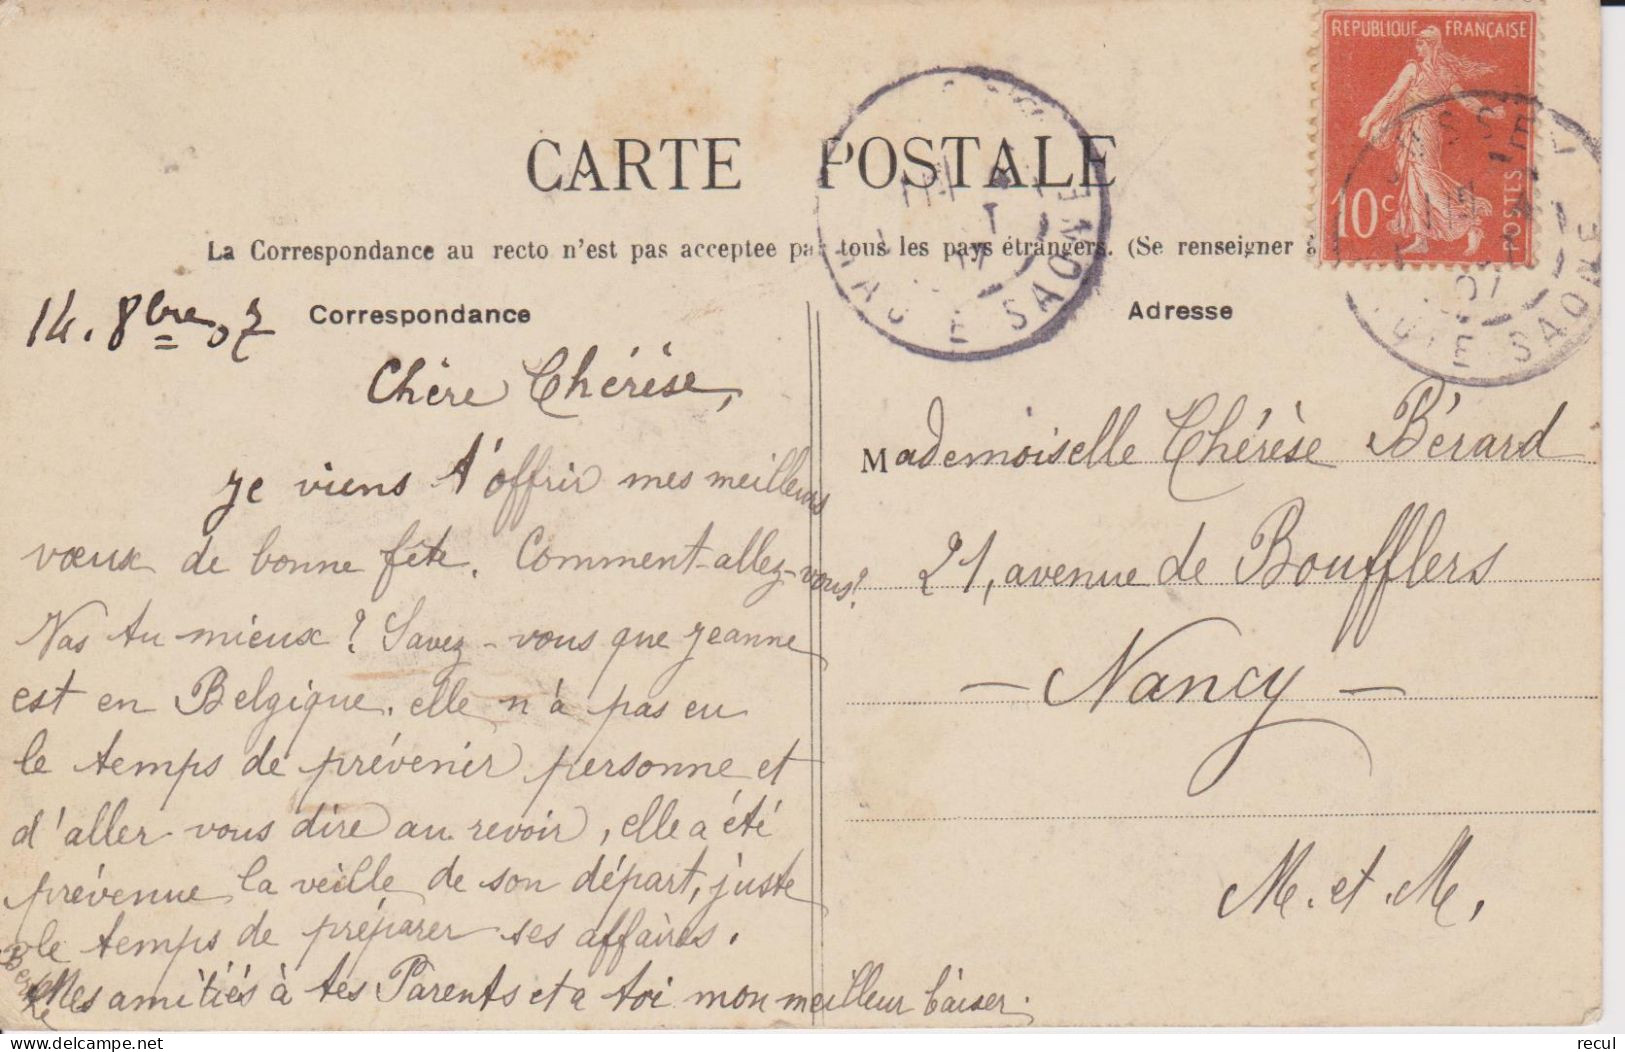 REPUBLIQUE FRANÇAISE
10 c
POSTES
CARTE POSTALE
La Correspondance au recto n'est pas acceptee par tous les pays étrangers. (Se renseigner
SAONE
SAONE
14. 8bre 07
Correspondance
Adresse
Chère Thérèse,
je viens t'offrir mes meilleurs
vœux de bonne fête. Comment-allez-vous?
Vas tu mieux? Savez-vous que Jeanne
est en Belgique, elle n'à pas eu
le temps de prévenir personne et
d'aller vous dire au revoir, elle a été
prévenue la veille de son départ, juste
le temps de préparer ses affaires.
Mes amitiés à tes Parents et a toi mon meilleur baiser.
Mademoiselle Thérèse Bérard
21, avenue de Boufflers
- Nancy -
M. et. M,
delcampe.net
recul